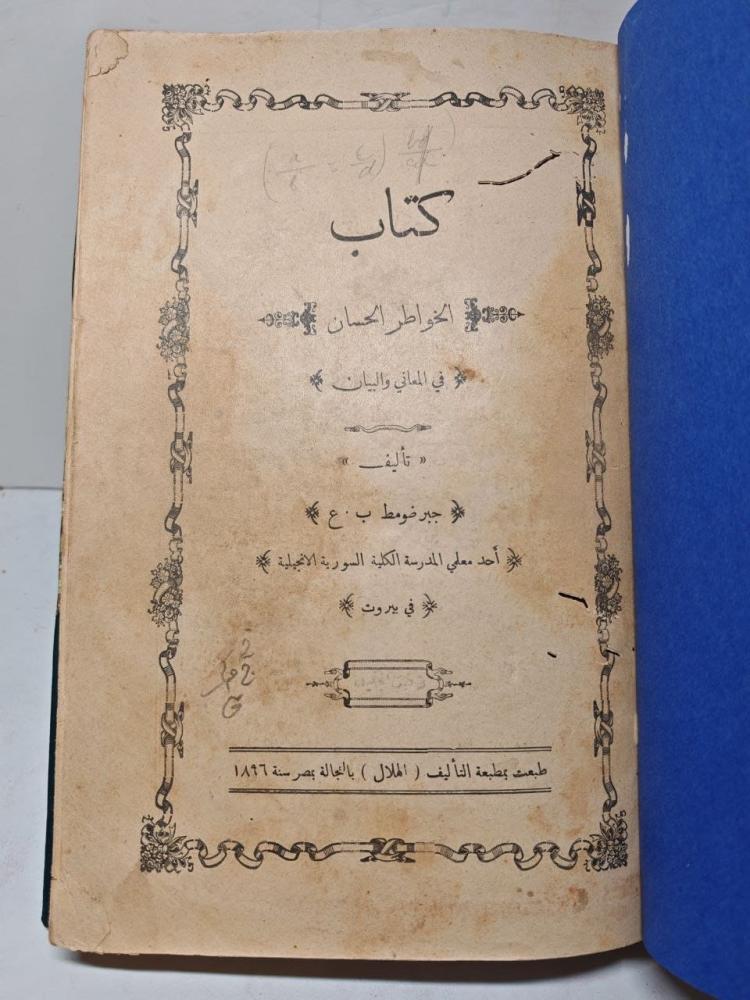 كتاب
الخواطر الحسان
في المعاني والبيان
« تأليف »
جبر ضومط ب . ع
أحد معلمي المدرسة الكلية السورية الانجيلية
في بيروت
طبعت بمطبعة التأليف ( الهلال ) بالفجالة بمصر سنة ١٨٩٦